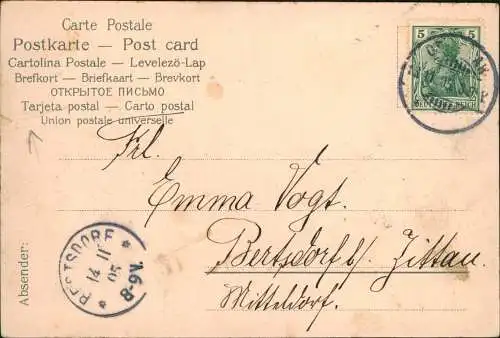 Carte Postale
Postkarte — Post card
Cartolina Postale — Levelező-Lap
Brefkort — Briefkaart — Brevkort
ОТКРЫТОЕ ПИСЬМО
Tarjeta postal — Carto postal
Union postale universelle
5 5
DEUTSCHES REICH
Frl.
Emma Vogt.
Bertsdorf b/. Zittau.
Mitteldorf.
BERTSDORF
14 11
05
6-8N.
Absender: